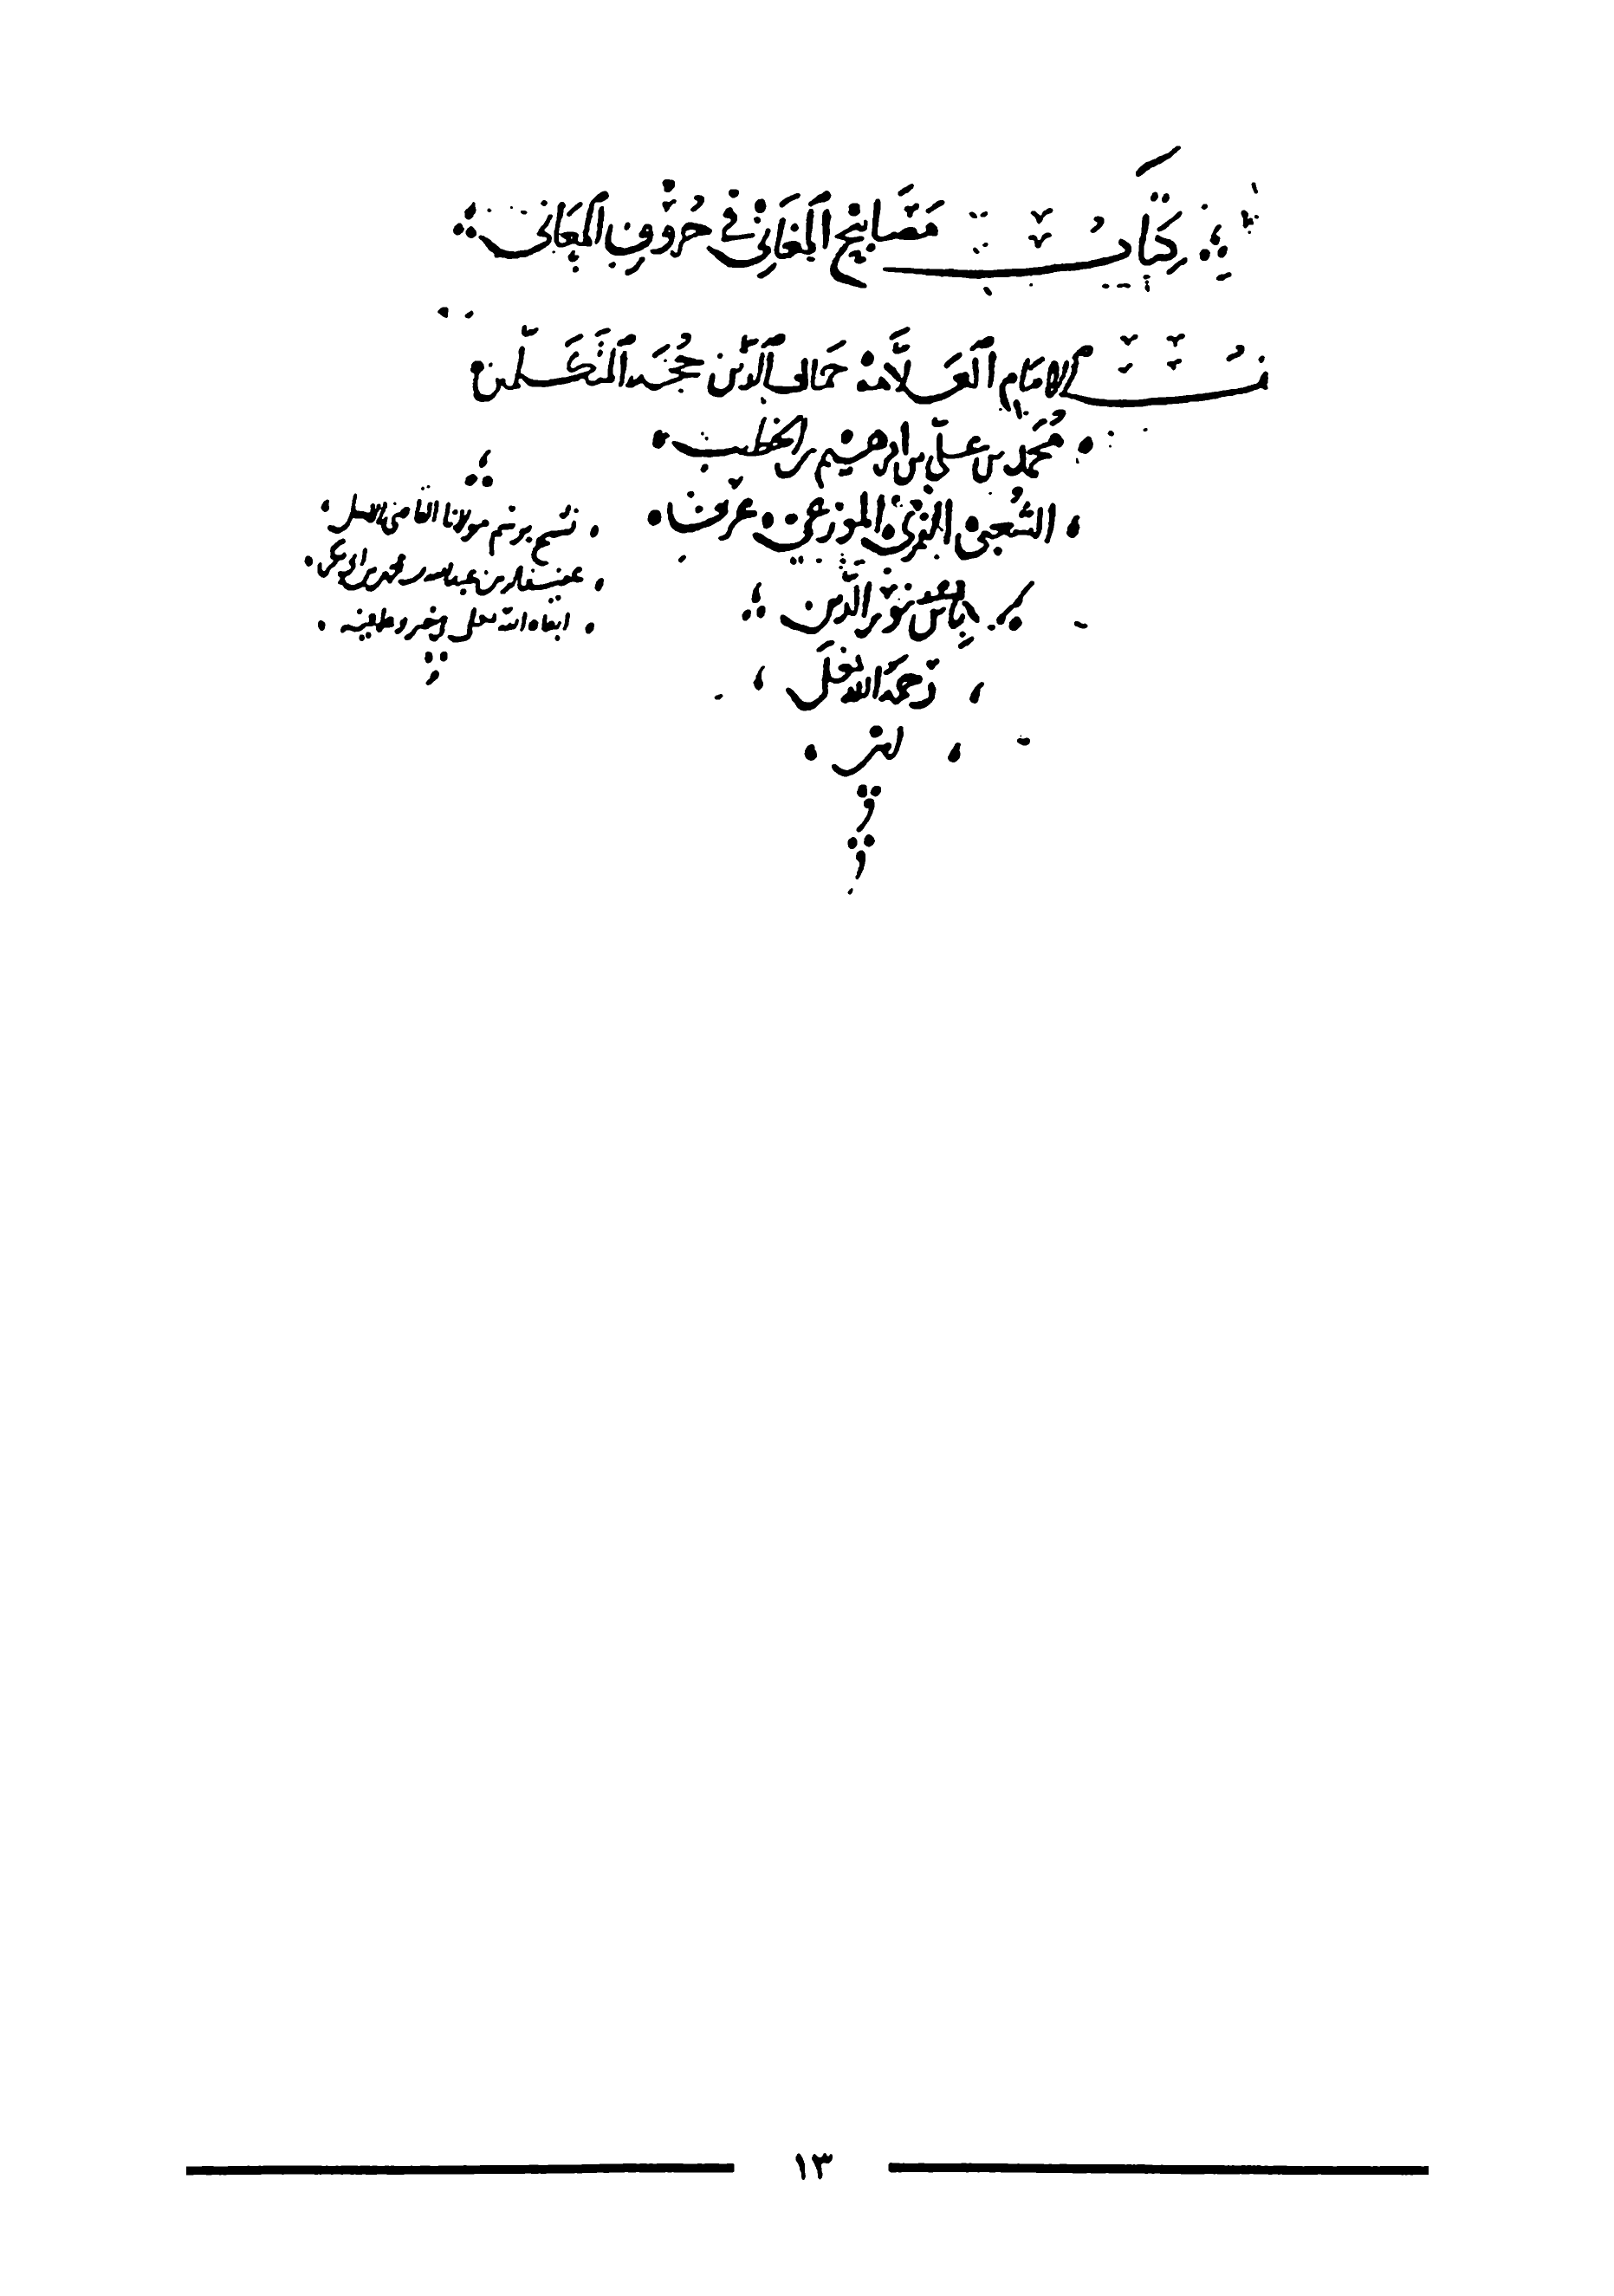 كِتَابُ مَصَابِيح المَغَانِي فِي حُرُوفِ المَعَانِي
الامَام العَلَّامَة جَمَال الدِّين حُجَّة المُتَكَلِّمين
مُحَمَّد بن عَلي بن ابرهيم بن الخطيب
الشَّعبي اليمني الموزعي عرف
بابن نور الدِّين
رَحِمَهُ الله تعَالى
نسخ برسم مولانا القاضي
عفيف الدين عبد الله بن محمد بن
ابقاه الله تعالى في خير وعافيه
١٣